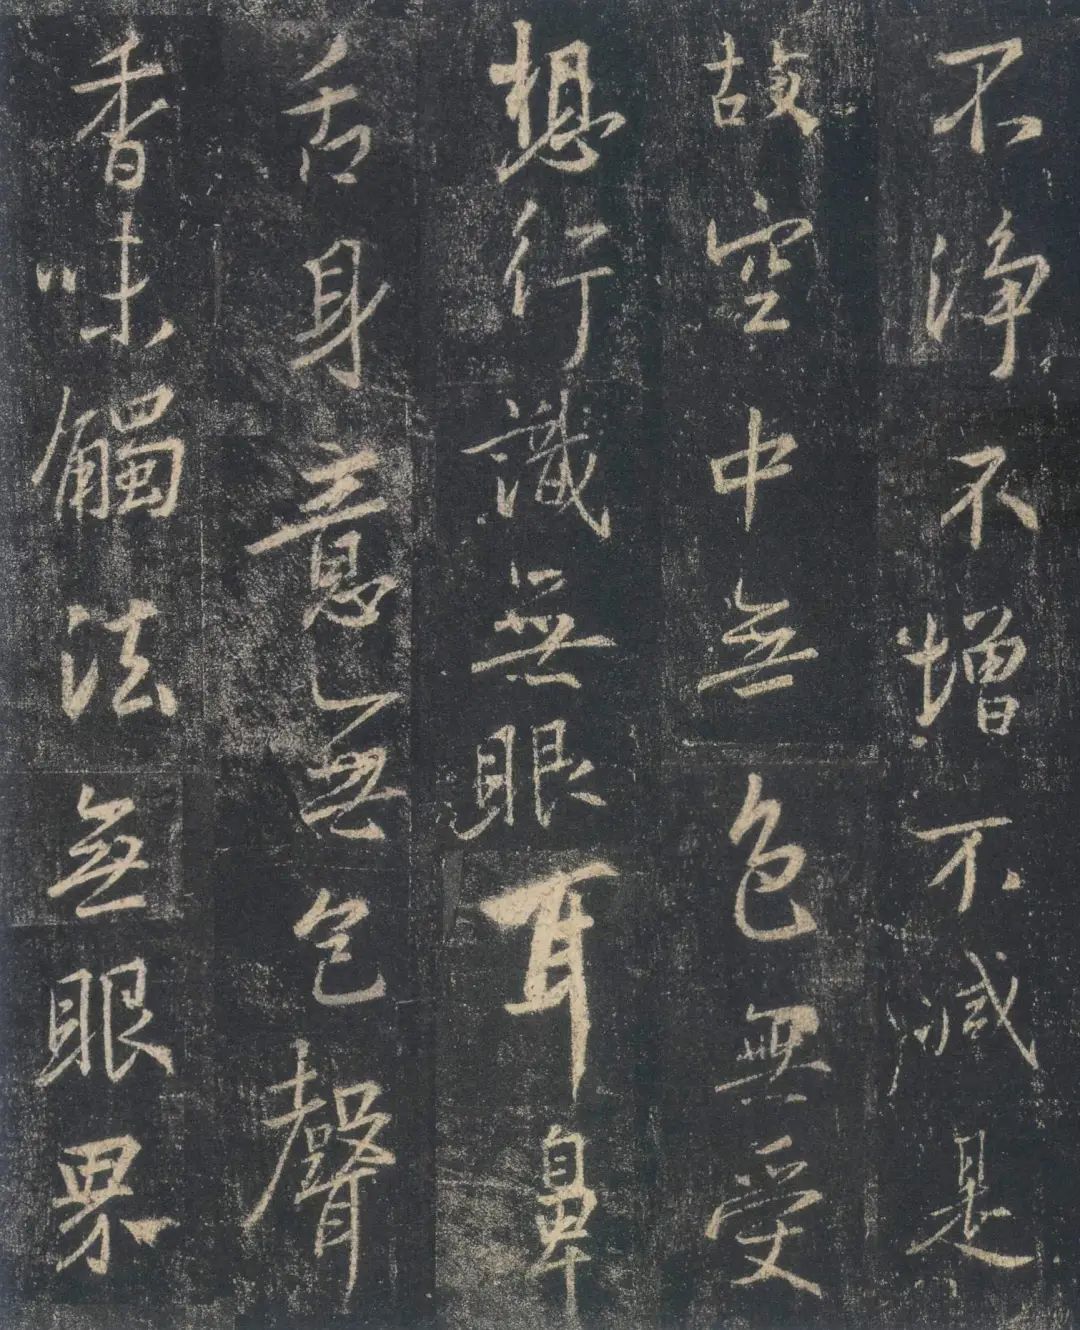 不淨不增不減是
故空中無色無受
想行識無眼耳鼻
舌身意無色聲
香味觸法無眼界